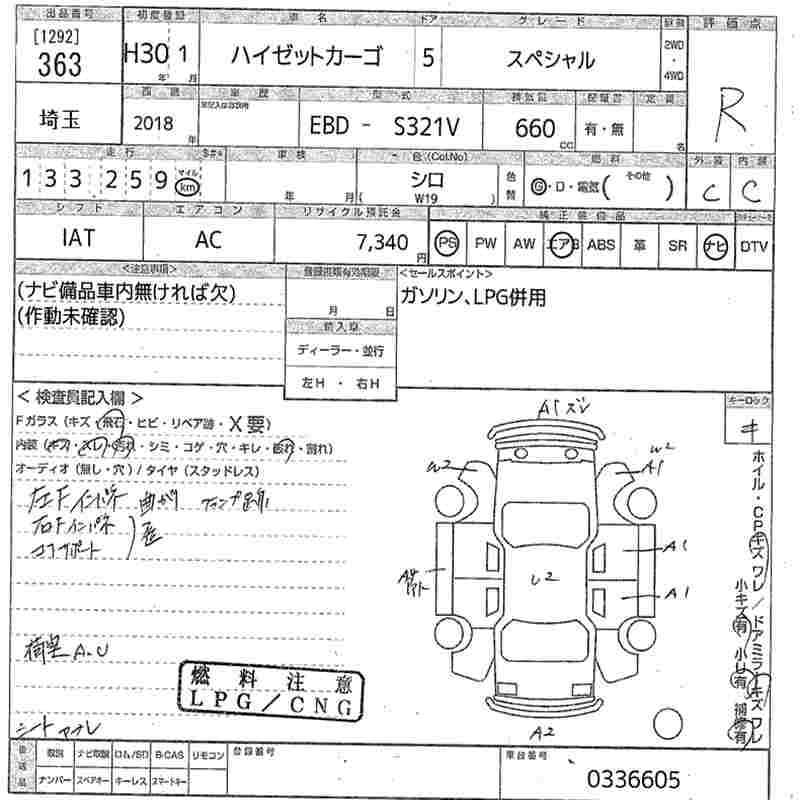 出品番号 初度登録 車名 ドア グレード 駆動 評価点
[1292]
363 H30 1 ハイゼットカーゴ 5 スペシャル 2WD・4WD R
年 月
西暦 車歴 型式 排気量 記録書 定員
埼玉 2018年 EBD - S321V 660 CC 有・無 名
走行 車検 色(Col.No) 燃料 外装 内装
133 259 マイル km 年 月 シロ 色替 G・D・電気( その他 ) C C
( W19 )
シフト エアコン リサイクル預託金 純正装備品
IAT AC 7,340円 PS PW AW エアB ABS 革 SR ナビ DTV
<注意事項> 登録書類有効期限 <セールスポイント>
(ナビ備品車内無ければ欠) ガソリン、LPG併用
(作動未確認) 月 日
輸入車
ディーラー・並行
左H ・ 右H
<検査員記入欄> キーロック
Fガラス(キズ・飛石・ヒビ・リペア跡・X要)
内装(キズ・スレ・汚れ・シミ・コゲ・穴・キレ・破れ・割れ)
オーディオ(無し・穴)/タイヤ(スタッドレス)
左Fインパネ 曲がり
右Fインパネ
コアサポート
荷室 A.U
A1 W2 W2 A1
A1 U2 A1
A2
燃料注意
LPG/CNG
ホイル・CPキズワレ/ドアミラーキズワレ
小キズ有 小U有 補修有
後送品 取説 ナビ取説 ロム/SD B-CAS リモコン 登録番号 車台番号
ナンバー スペアキー キーレス スマートキー 0336605